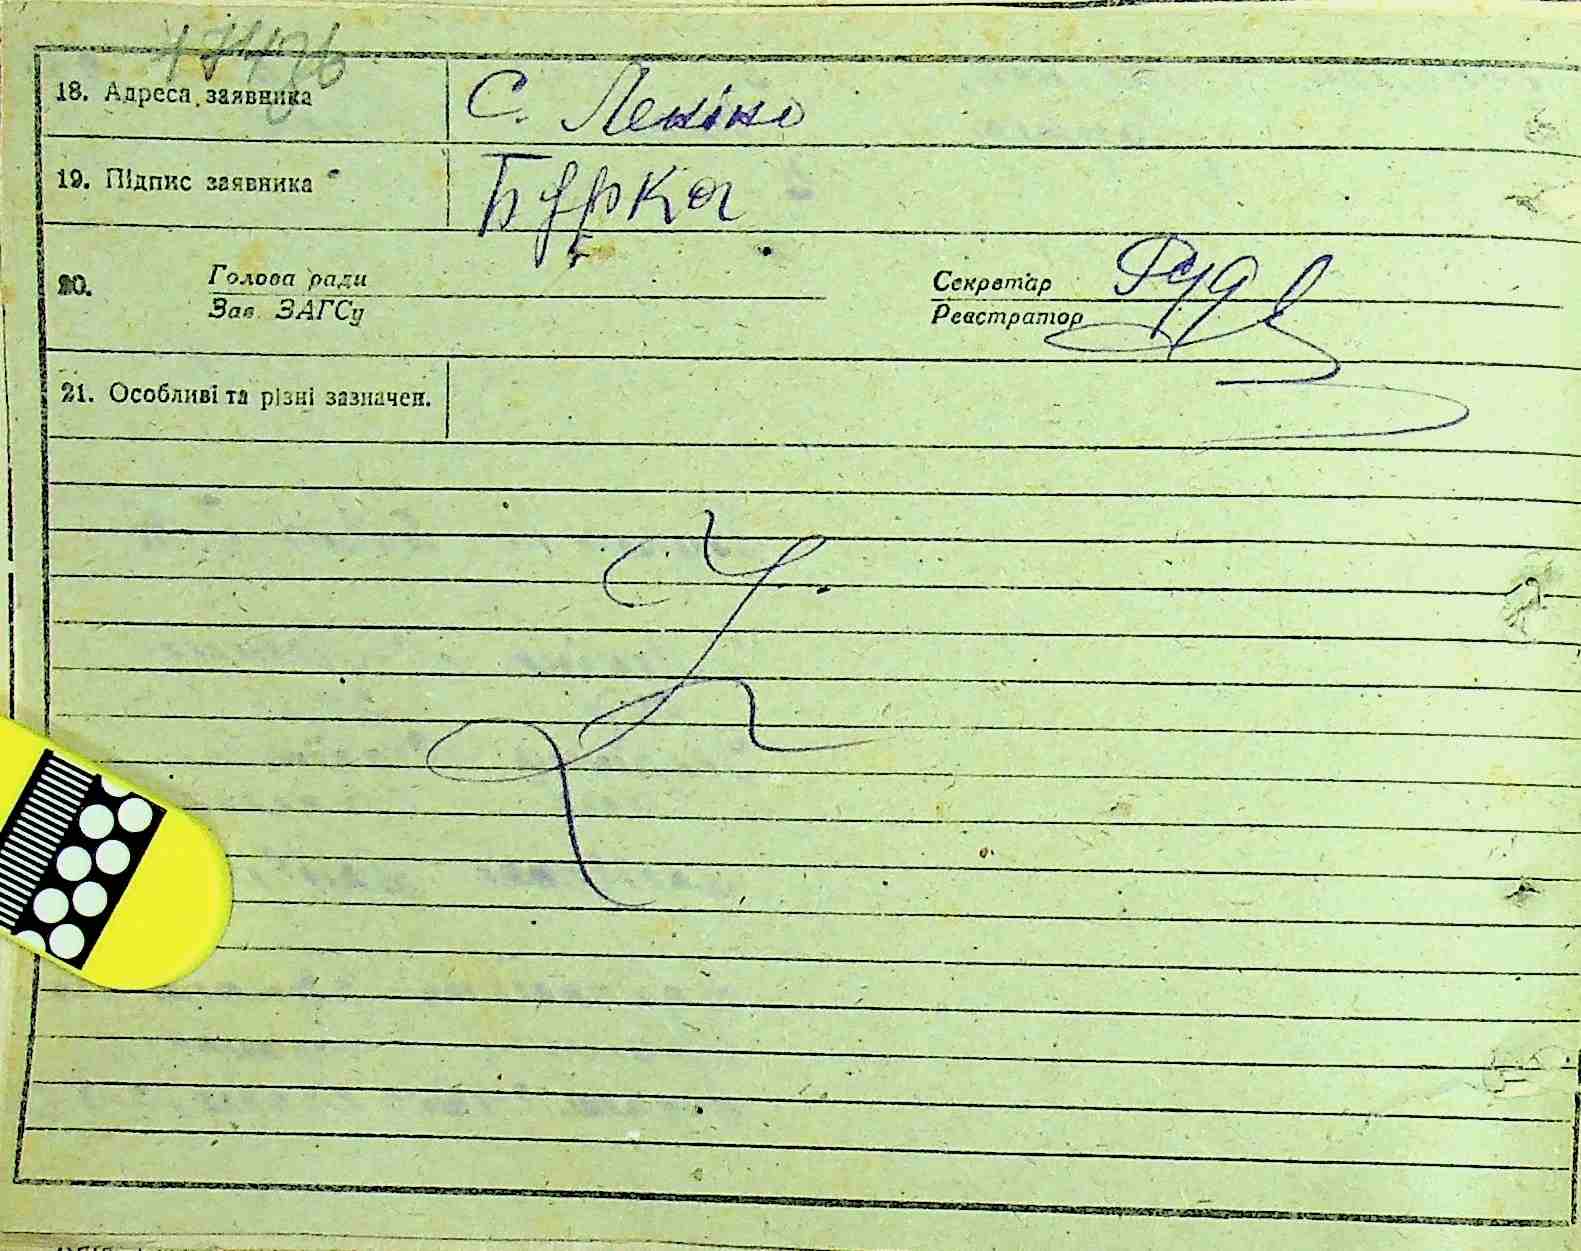 18. Адреса заявника С. Леніно
19. Підпис заявника Бурка
20. Голова ради Секретар Руд
Зав. ЗАГСу Реєстратор
21. Особливі та різні зазначен.